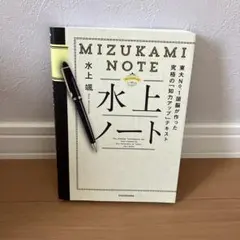 MIZUKAMI
NOTE
水上
颯
東大No.1頭脳が作った
究極の「知力アップ」テキスト
水上
ノート
KADOKAWA